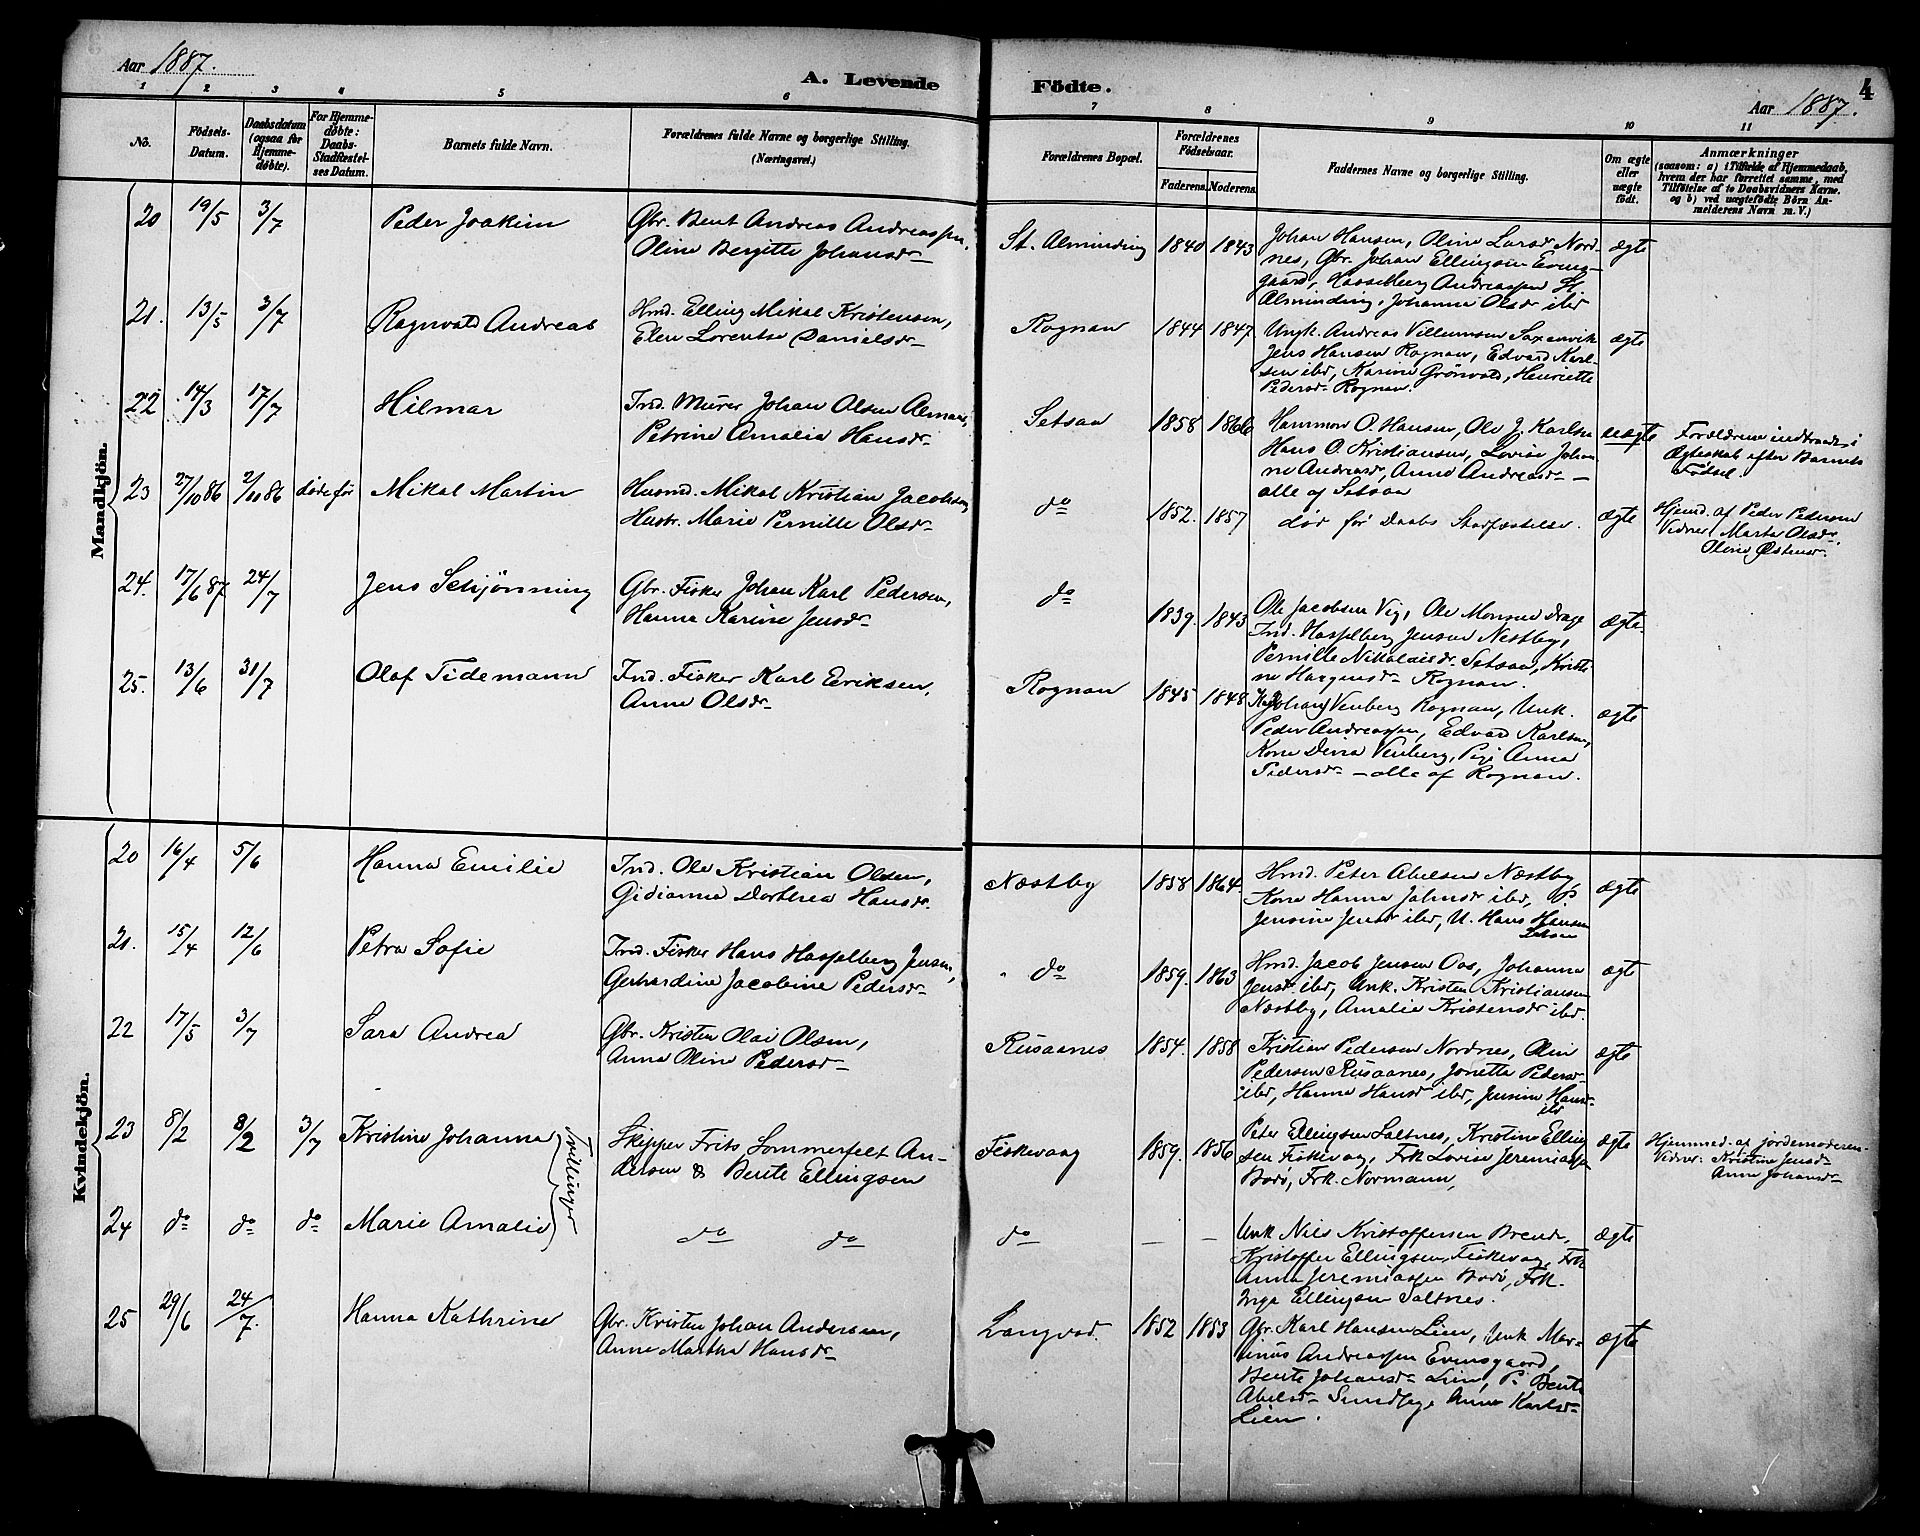 Aar 1887.
A. Levende
Fødte.
4
Aar 1887.
1 2 3 4 5 6 7 8 9 10 11
No.
Fødsels-
Datum.
Daabsdatum
(ogsaa for
Hjemme-
døbte).
For Hjemme-
døbte:
Daabs-
Stadfæstel-
ses Datum.
Barnets fulde Navn.
Forældrenes fulde Navne og borgerlige Stilling.
(Næringsvei.)
Forældrenes Bopæl.
Forældrenes
Fødselsaar.
Faderens. Moderens.
Faddernes Navne og borgerlige Stilling.
Om ægte
eller
uægte
født.
Anmærkninger
(saasom: a) i Tilfælde af Hjemmedaab,
hvem der har forrettet samme, med
Tilføielse af to Daabsvidners Navne.
og b) ved uægtefødte Børn An-
melderens Navn m. V.)
Mandkjön.
20 19/5 3/7 Peder Joakim
Gbr. Bent Andreas Andreassen,
Oline Bergitte Johansdr
St. Alminding 1840 1843
Johan Hansen, Oline Larsdr Nord-
nes, Gbr. Johan Ellingsen Evens-
gaard, Hasselberg Andreassen St.
Alminding, Johanna Olsdr ibd
ægte
21. 13/5 3/7 Ragnvald Andreas
Hmd. Elling Mikal Kristensen,
Elen Lorentse Danielsdr
Rognan 1844 1847.
Ungk. Andreas Villumsen Saxenvik
Jens Hansen Rognan, Edvard Karl-
sen ibd, Karine Grönvold, Henriette
Pedersdr Rognan.
ægte
22 14/3 17/7 Hilmar
Ind. Murer Johan Olsen
Petrine Amalia Hansdr
Setsaa 1858 1866
Hammon O. Hansen, Ole J. Karlsen
Hans O. Kristiansen, Lovise Johan
ne Andreasdr, Anne Andreasdr
alle af Setsaa
uægte
Forældrene indtraadte i
Ægteskab efter Barnets
Fødsel.
23 27/10 86 2/11 86 døde før Mikal Martin
Husmd. Mikal Kristian Jacobsen
Hustr. Marie Pernille Olsdr
do 1852. 1857
død før Daabs Stadfæstelse.
ægte
Hjemd. af Peder Pedersen
Vidner Marta Olsdr,
Oline Østensdr
24. 17/6 87 24/7 Jens Schjønning
Gbr. Fisker Johan Karl Pedersen,
Hanna Karine Jensdr
do 1839. 1843
Ole Jacobsen Vig, Ole Monsen Drage
Ind. Hasselberg Jensen Nestby,
Pernille Nikolaisdr Setsaa, Kristi
ne Rognan.
ægte.
25. 13/6 31/7 Olaf Tidemann
Ind. Fisker Karl Eriksen,
Anne Olsdr
Rognan 1845 1848
Johan Venberg Rognan, Unk.
Peder Andreassen, Edvard Karlsen,
Kone Dina Venberg, Pige Anna
Pedersdr - alle af Rognan.
ægte
Kvindekjön.
20 16/4 5/6 Hanna Emilie
Ind. Ole Kristian Olsen,
Gidianna Dorthea Hansdr.
Næstby 1858 1864.
Hmd. Peter Abelsen Næstby
Kone Hanna Johnsdr ibd, P.
Jensine Jensdr ibd, U. Hans Hansen
Setsaa
ægte
21. 15/4 12/6 Petra Sofie
Ind. Fisker Hans Hasselberg Jensen,
Gerhardine Jacobine Pedersdr
do 1859. 1863
Hmd. Jacob Jensen Oos, Johanna
Jensdr ibd, Unk. Kristen Kristiansen
Næstby, Amalie Kristensdr ibd.
ægte
22 17/5 3/7 Sara Andrea
Gbr. Kristen Olai Olsen,
Anna Oline Pedersdr
Rusaanes 1854. 1858
Kristian Pedersen Nordnes, Olin
Pedersen Rusaanes, Jonetta Pedersdr
ibd, Hanna Hansdr ibd, Jensine Hansdr
ibd
ægte
23 8/2 8/2 3/7 Kristine Johanna
Tvillinger
Skipper Frits Sommerfelt An-
dersen & Bente Ellingsen
Fiskevaag 1859. 1856
Peter Ellingsen Saltnes, Kristine Elling
sen Fiskevag, Frk Lovise Jeremiassen
Bodø, Frk. Normann,
ægte
Hjemmed. af Jordemoderen
Vidner: Kristine Jensdr
Anne Johansdr
24 do do do Marie Amalie
do do
do - -
Unk Nils Kristoffersen
Kristoffer Ellingsen Fiskevag, Frk
Anna Jeremiassen Bodø, Frk.
Inga Ellingsen Saltnes.
ægte
25 29/6 24/7. Hanna Kathrine
Gbr. Kristen Johan Andersen,
Anne Martha Hansdr
Langvad. 1852 1853
Gbr. Karl Hansen Lien, Unk Mar-
tinus Andreassen Evensgaard,
Bente Johansdr Lien, P. Bente
Abelsdr Anne Karlsdr
Lien.
ægte